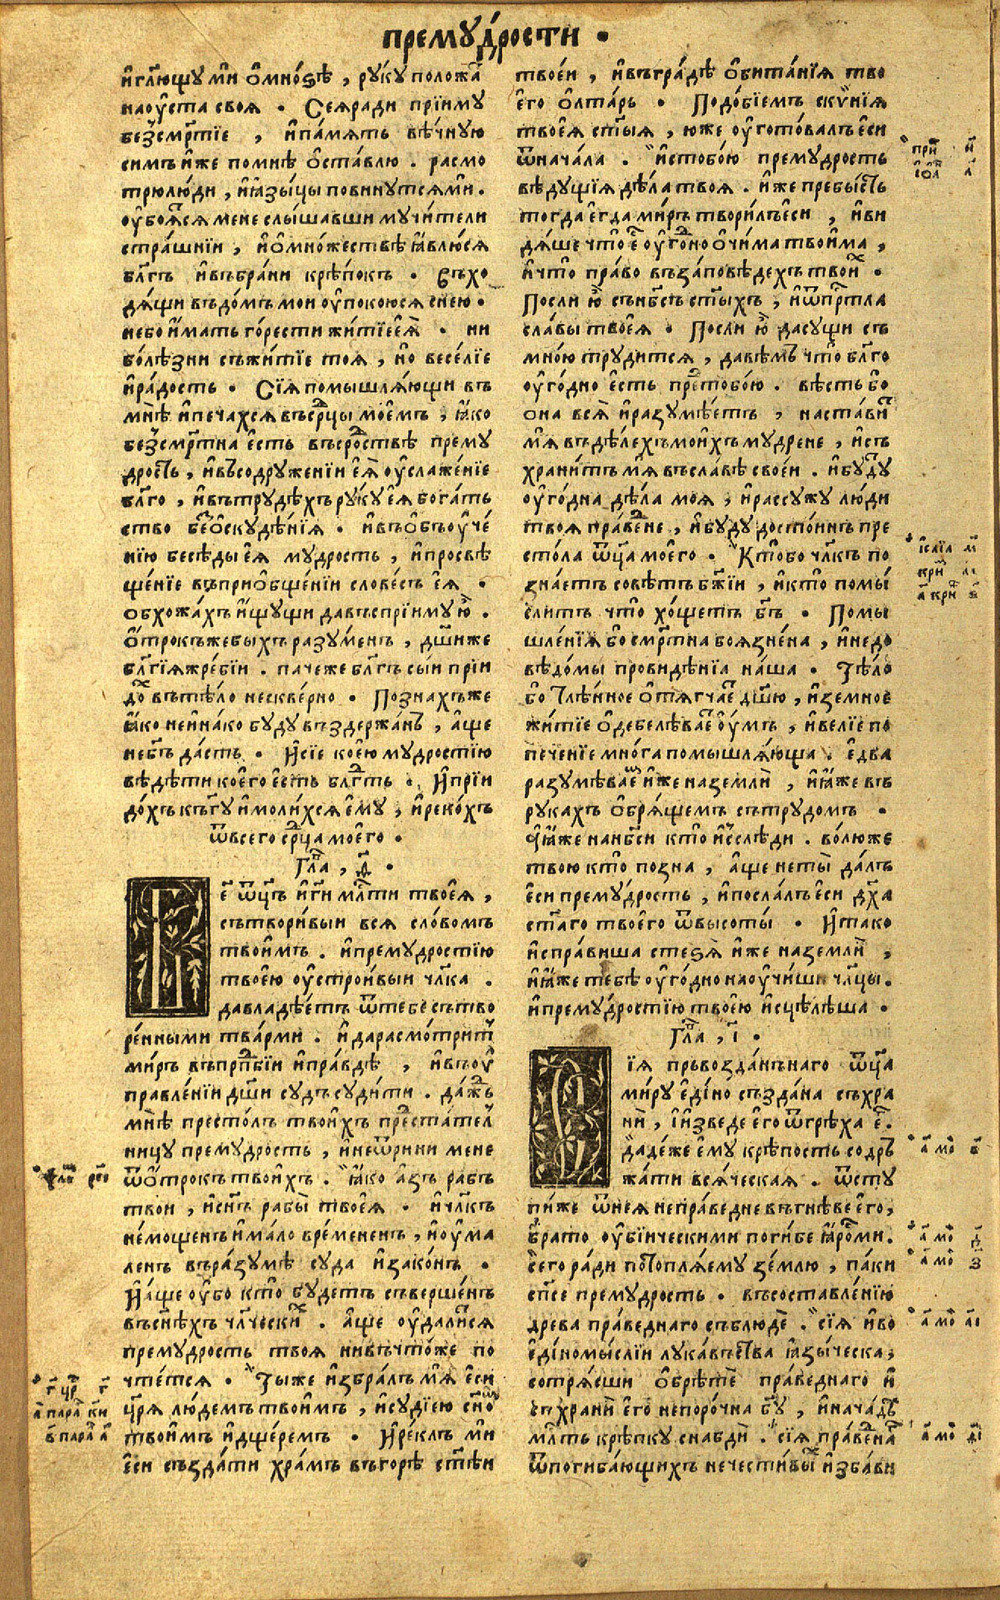 премꙋ́дрости •
и҆гл҃ющꙋ ми ѡ҆мно́ѕѣ , рꙋ́кꙋ положа́т
наᲂу҆ста своя • Сея́ради прїимꙋ
безсмр҃тїе , и҆па́мять вѣ́чнꙋю
симъ и҆же помнѣ ѡ҆ста́влю . расмо
трю лю́ди , и҆ꙗ҆зы́цы повинꙋтсями .
ᲂу҆боя́тся мене слы́шавши мꙋчи́тели
стра́шнїи , и҆ѡ҆мно́жествѣ ꙗ҆влю́ся
бл҃гъ и҆въбра́ни крѣ́покъ • Въхо
дя́щи въдо́мъ мои ᲂу҆покоюся сне́ю .
не бо и҆́мать го́рести житїе ея̀ . ни
болѣ́зни съжи́тїе тоя , но весе́лїе
и҆ра́дость • Сїя помышля́ющи въ
мнѣ̀ и҆печахся въср҃цы мое́мъ , ꙗ҆́ко
безсмр҃тна е҆сть въсро́дствѣ премꙋ
дрости , и҆въсодрꙋжении ея̀ ᲂу҆слаже́нїе
бл҃го , и҆вътрꙋдѣхъ рꙋкꙋ ея бога́ть
ство безѡ҆скꙋдѣ́нїя . и҆въѡ҆бъᲂу҆че́
нїю бесѣ́ды ея мꙋдрость , и҆просвѣ
ще́нїе въприѡ҆бще́нїи слове́съ е҆я .
ѡбхожа́хъ и҆́щꙋщи давъспрїимꙋ ю҆̀ .
Ѻ҆трокъжебыхъ разꙋ́менъ , дш҃и же
бл҃гїя жре́бїи . паче же бл҃гъ сы́и прїи
до́х въ тѣ́ло нескве́рно • Позна́хъже
ꙗ҆́ко не и҆на́ко бꙋ́дꙋ въздержа́нъ , а҆ще
не бг҃ъ да́сть . И҆сїе кое́ю мꙋдростїю
вѣдѣти кое́го е҆сть бл҃годть . И҆прїи
до́хъ къ г҃ꙋ и҆моли́хся е҆мꙋ , и҆реко́хъ
ѿ всего ср҃ца мое́го •
Гла҃ , ѳ҃ •
Бе҃ ѿц҃ъ и҆ г҃и мл҃ти твоея̀ ,
сътвори́выи вся сло́вомъ
твои́мъ . и҆премꙋдростїю
твое́ю ᲂу҆строи́выи чл҃ка .
да владѣ́етъ ѿ тебе сътво
ре́нными тва́рми . и҆ да расмо́трит
ми́ръ въ прп҃бїи и҆пра́вдѣ , и҆въᲂу҆
правле́нїи дш҃и сꙋдъ сꙋди́ти . да́ждь
мнѣ̀ престо́лъ твои́хъ преста́тел
ницꙋ премꙋдрость , и҆не ѿри́ни мене
ѿ ѻ҆трокъ твои́хъ . ꙗ҆́ко а҆́зъ рабъ
твои , и҆сн҃ъ рабы̀ твоея̀ . и҆чл҃къ
не́мощенъ и҆ ма́ло вре́мененъ , и҆ᲂу҆ма
ленъ въ ра́зꙋмѣ сꙋда и҆зако́нъ .
И҆ а҆́ще ᲂу҆бо кто̀ бꙋдетъ съверше́нъ
въ сн҃ѣхъ чл҃чески́х . а҆ще ᲂу҆дали́тся
премꙋ́дрость твоя нивъчто́же по
чте́тся . Ты́же и҆збра́лъ мя̀ е҆си
цр҃я лю́демъ твои́мъ , и҆сꙋдїею сн҃ѡм
твои́мъ и҆дще́ремъ . И҆ре́клъ ми
е҆си създа́ти хра́мъ въ горѣ̀ ст҃ѣи
твое́и , и҆въ гра́дѣ ѡ҆бита́нїя тво
его ѻ҆лта́рь . Подо́бїемъ скѵ́нїя
твоея̀ ст҃ыя , ю́же ᲂу҆гото́валъ е҆си
ѿ нача́ла . И҆стобо́ю премꙋдрость
вѣ́дꙋщїя дѣ́ла твоя . и҆́же пребы́сть
тогда е҆гда ми́ръ твори́лъ е҆си , и҆ви
дя́ше что̀ е҆ ᲂу҆го́дно ѻ҆чи́ма твои́ма ,
и҆что̀ пра́во въ за́повѣдехъ твои́х .
Послѝ ю҆̀ съ нб҃съ ст҃ы́хъ , и҆ ѿ пр҃тла
сла́вы твоея̀ . Послѝ ю҆̀ да сꙋщи съ
мно́ю трꙋди́тся , да вѣ́мъ что̀ бл҃го
ᲂу҆го́дно е҆сть пре́дтобо́ю . вѣ́сть бо
ѻна вся̀ и҆разꙋмѣ́етъ , наста́вит
мя̀ въ дѣ́лехъ мои́хъ мꙋдрене , и҆съ
храни́тъ мя̀ въ сла́вѣ свое́и . и҆бꙋ́дꙋ
ᲂу҆го́дна дѣ́ла моя , и҆рассꙋжꙋ лю́ди
твоя пра́ведне , и҆бꙋдꙋ досто́инъ пре
сто́ла ѿц҃а мое́го . Кто̀ бо чл҃къ по
зна́етъ совѣ́тъ бж҃їи , и҆кто̀ помы́
слитъ что̀ хо́щетъ бг҃ъ • Помы
шле́нїя бо смр҃тна боязне́на , и҆недо
вѣ́домы провидѣ́нїа на́ша . Тѣ́ло
бо тлѣ́нное ѻ҆тягча́ет дш҃ю , и҆земное
жи́тїе ѻ҆дебелѣва́ет ᲂу҆́мъ , и҆ве́лїе по
пече́нїе мно́га помышля́юща . е҆два
разꙋмѣва́ем и҆́же на землѝ , и҆ꙗ҆́же въ
рꙋка́хъ ѡ҆бря́щемъ сътрꙋдомъ .
а҆ ꙗ҆́же на нб҃си кто̀ и҆сслѣди . во́лю же
твою кто̀ позна , а҆ще не ты̀ да́лъ
е҆си премꙋ́дрость , и҆посла́лъ е҆си дх҃а
ст҃аго твое́го ѿ высоты . И҆тако
и҆спра́виша стеѕя̀ и҆́же на землѝ ,
и҆ꙗ҆́же тебѣ̀ ᲂу҆го́дно наᲂу҆чи́ши чл҃цы .
и҆премꙋ́дростїю твое́ю и҆сцѣлѣ́ша .
Гла҃ , і҃ •
Сїя пръвозда́ннаго ѿц҃а
ми́рꙋ е҆ди́но създа́на съхра
нѝ , и҆ изведе его ѿ грѣха е҆г .
да́де́же е҆мꙋ крѣпость содръ
жа́ти вся́ческая . ѿстꙋ
пи́же ѿ нея непра́ведне въ гнѣве его ,
брато ᲂу҆бїическими поги́бе ꙗ҆́ростми .
Сего ра́ди потопля́емꙋ зе́млю , па́ки
сп҃се премꙋдрость . въ составле́нїю
дре́ва пра́веднаго съблюдѐ . сїя и҆ во
е҆диномы́слїи лꙋка́вьства ꙗ҆зы́ческа ,
сотря́сши ѡ҆брѣ́те пра́веднаго и҆
съхранѝ его непоро́чна бг҃ꙋ , и҆нача́дъ
мл҃ть крѣпкꙋ снабди̂ . сїя пра́ведна
ѿ погиба́ющихъ нечести́вых и҆збави